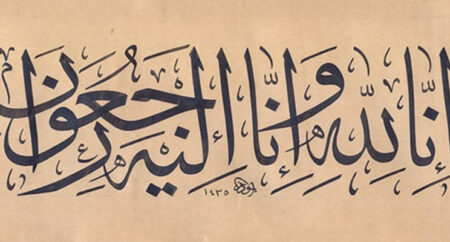 إنا لله وإنا إليه راجعون
١٤٣٥